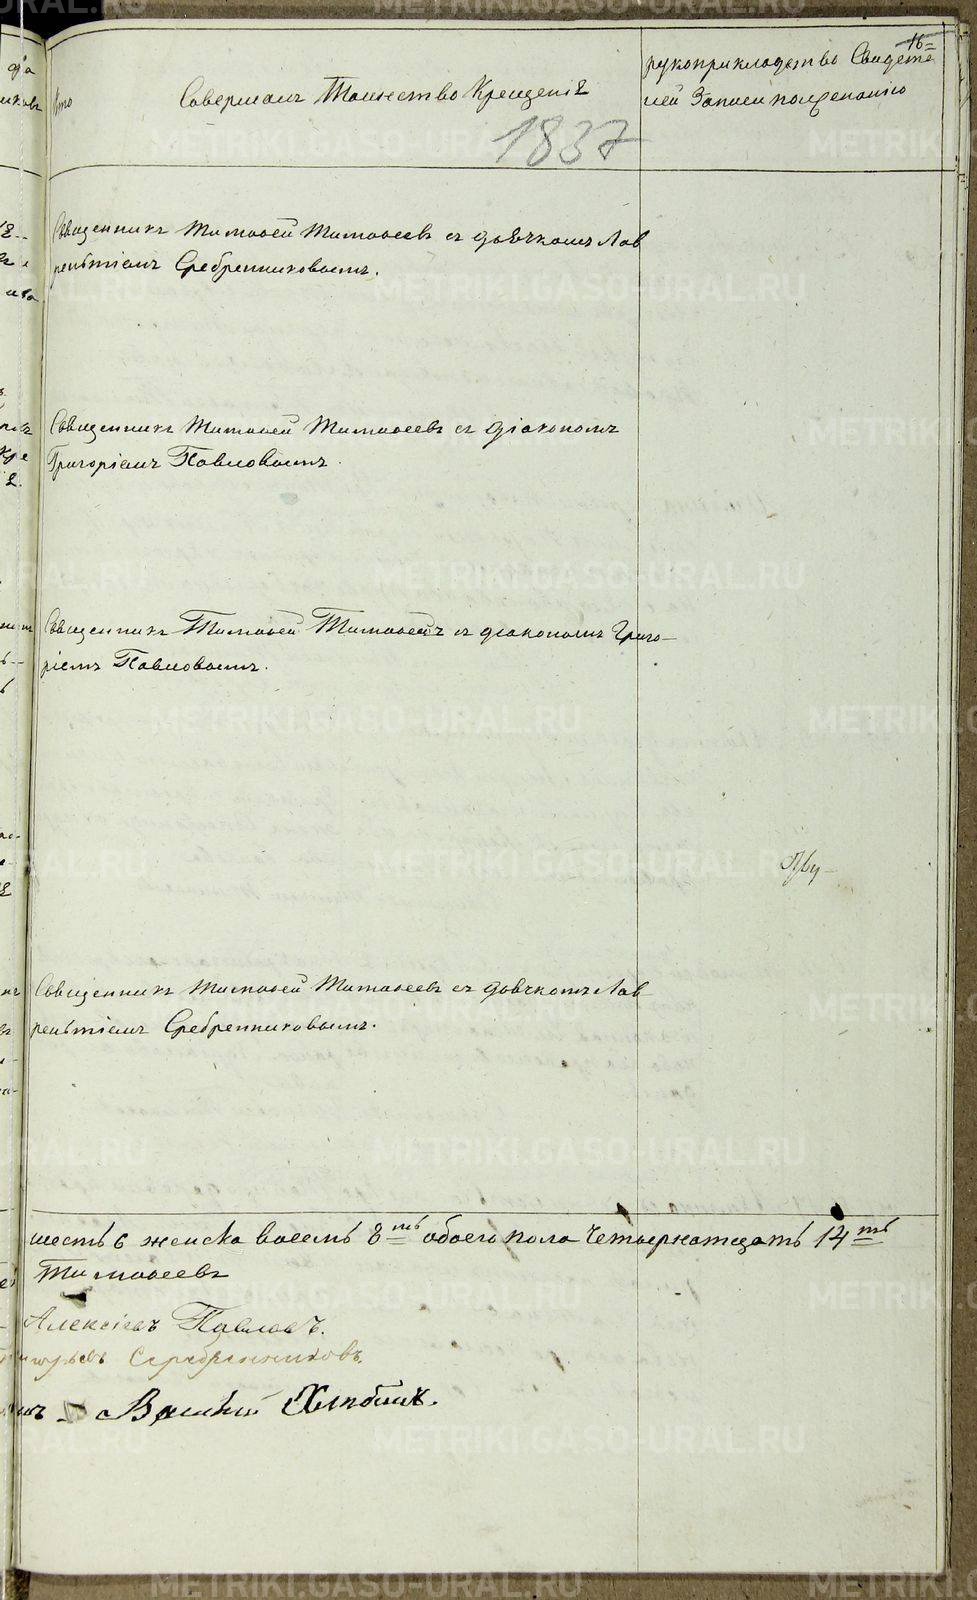 16
Кто Совершалъ Таинство Крещенія
рукоприкладство Свидете
лей Записи по желанію
1837
Священникъ Тимофей Тимофеевъ съ дьячкомъ Лав
рентіемъ Сребренниковымъ.
Священникъ Тимофей Тимофеевъ съ діакономъ
Григоріемъ Павловымъ.
Священникъ Тимофей Тимофеевъ съ діакономъ Григо-
ріемъ Павловымъ.
Священникъ Тимофей Тимофеевъ съ дьячкомъ Лав
рентіемъ Сребренниковымъ.
шесть 6 женска восемь 8мь обоего пола Четырнатцать 14ть
Тимофеевъ
Алексіевъ Павловъ.
Серебренниковъ.
Василій
METRIKI.GASO-URAL.RU